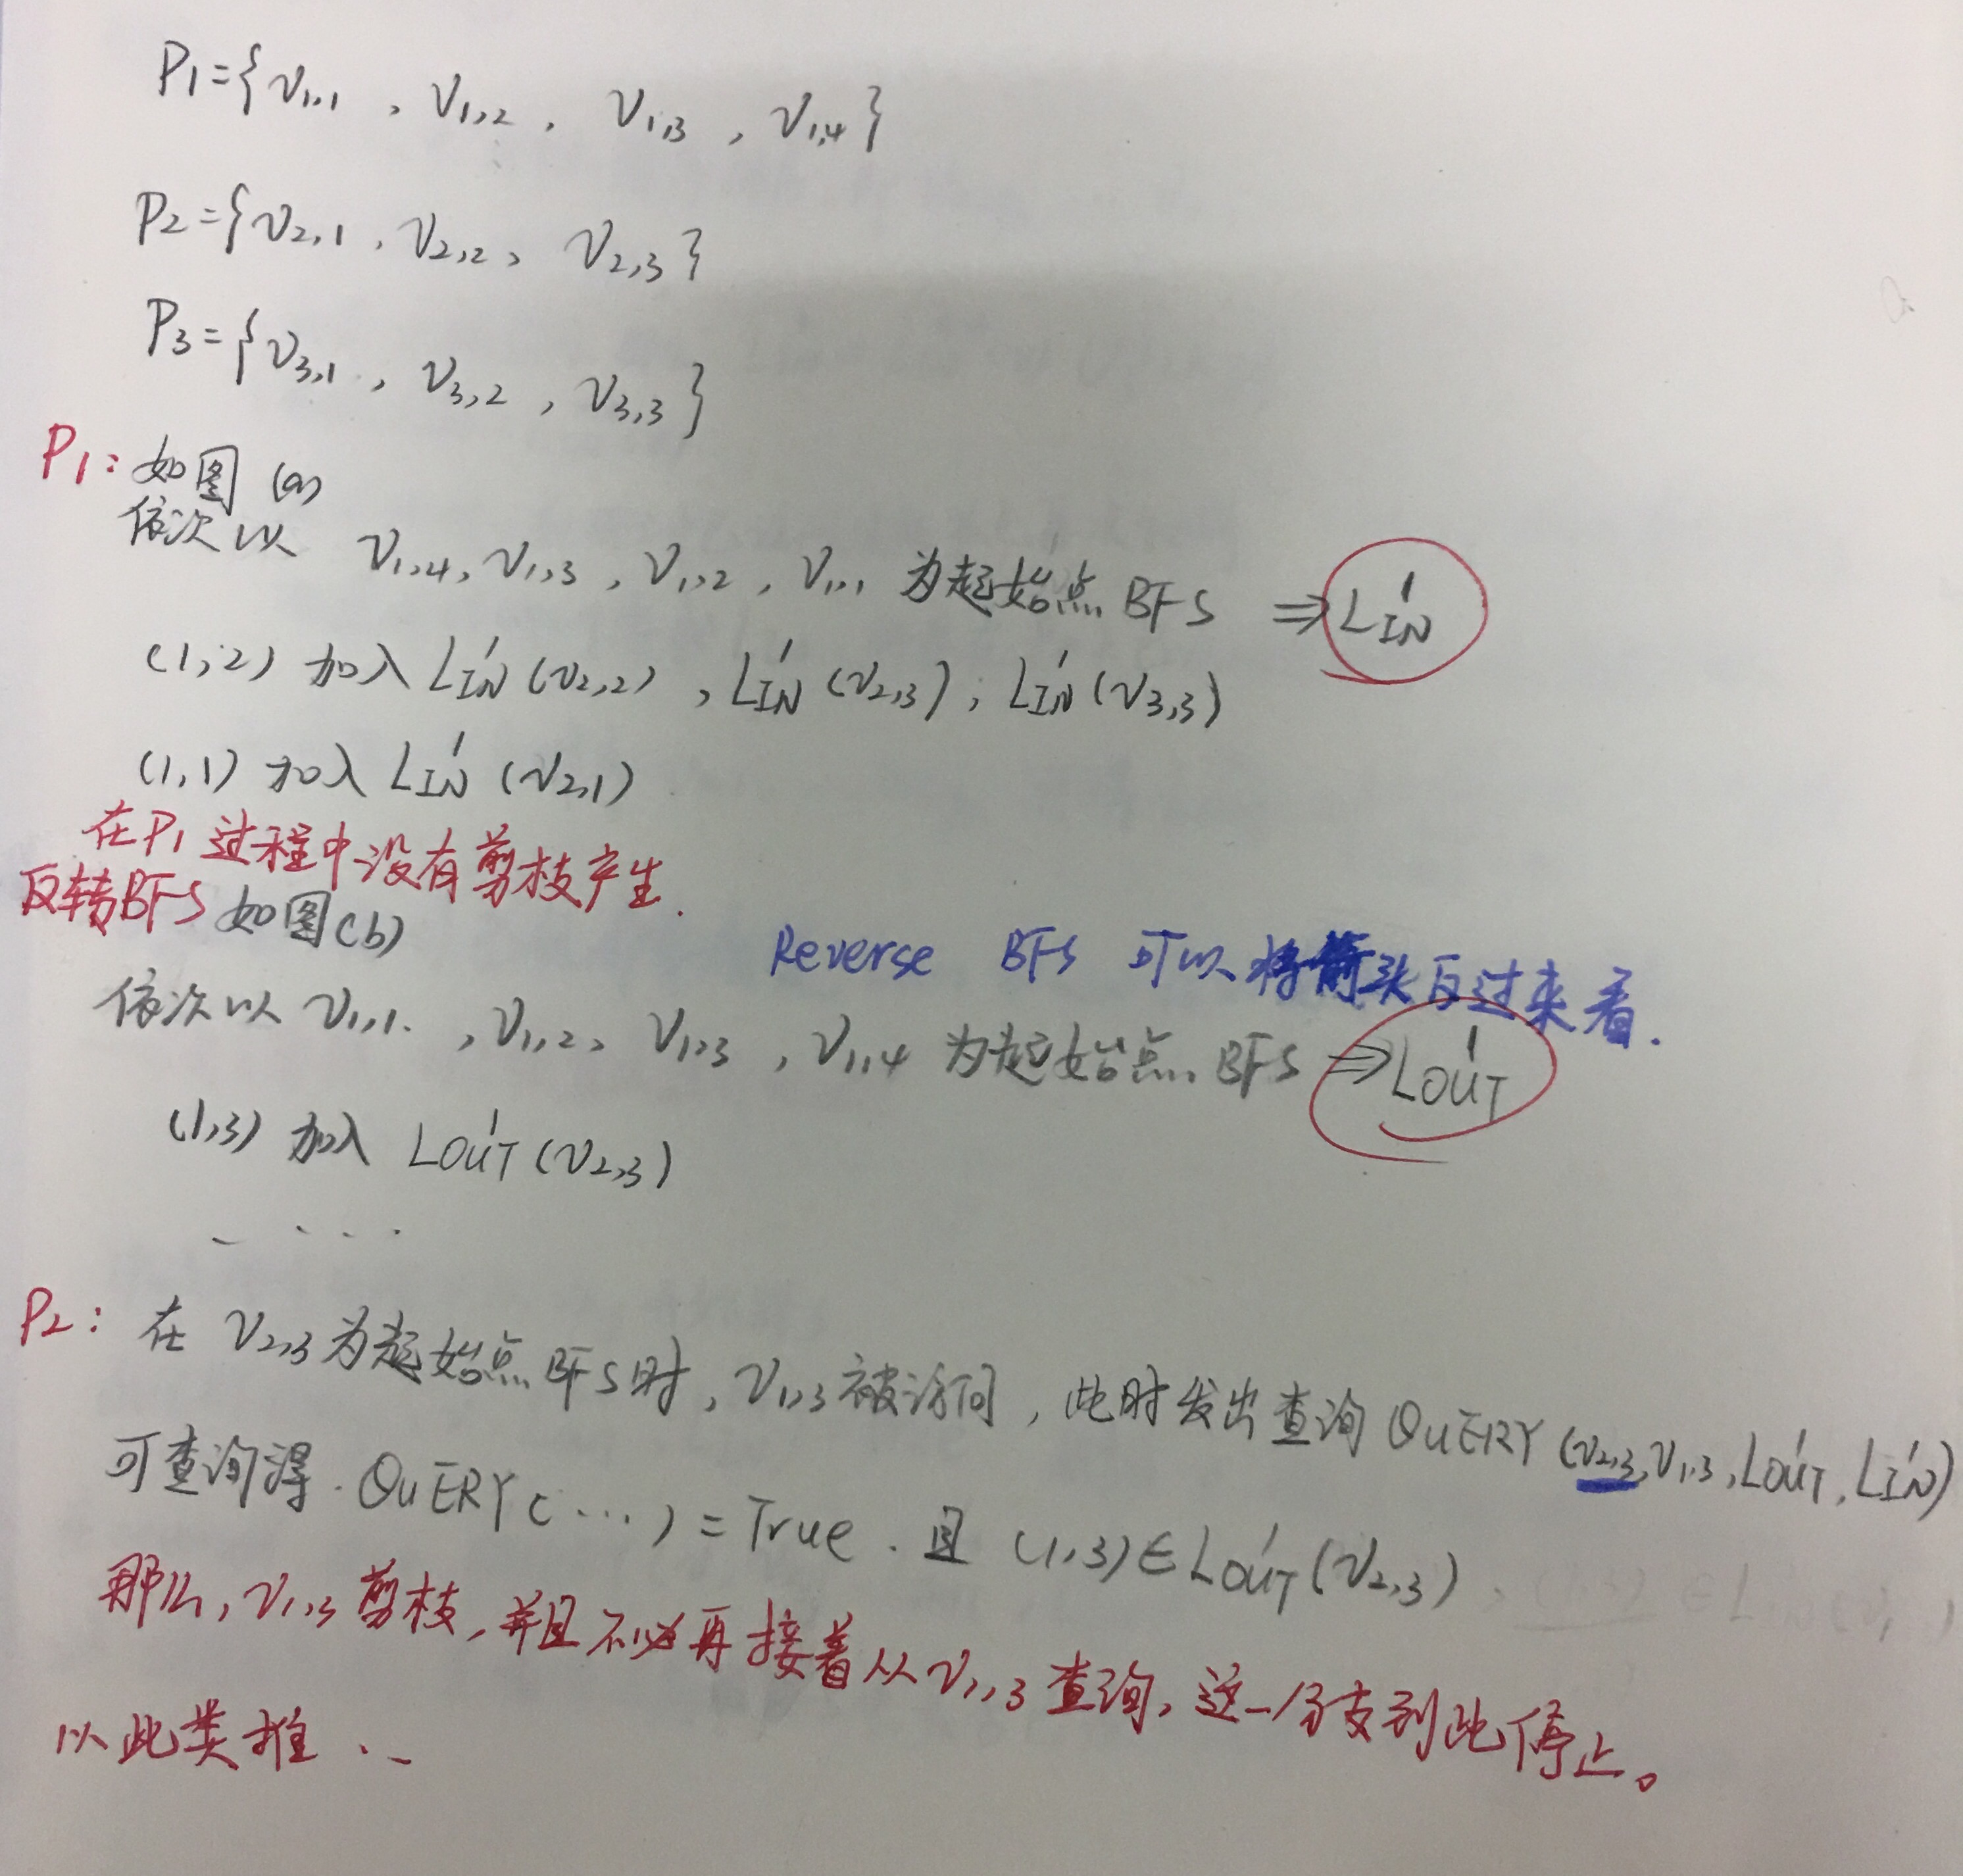 P1={v1,1 , v1,2 , v1,3 , v1,4}
P2={v2,1 , v2,2 、 v2,3}
P3={v3,1 , v3,2 , v3,3}
P1: 如图 (a)
依次以 v1,4, v1,3 , v1,2 , v1,1 为起始点 BFS ⇒ L'IN
(1,2) 加入 L'IN (v2,2) , L'IN (v2,3) , L'IN (v3,3)
(1,1) 加入 L'IN (v2,1)
在P1过程中没有剪枝产生.
反转BFS 如图(b)
Reverse BFS 可以将箭头反过来看.
依次以 v1,1 , v1,2 、 v1,3 , v1,4 为起始点 BFS ⇒ L'OUT
(1,3) 加入 L'OUT (v2,3)
....
P2: 在 v2,3为起始点BFS时, v1,3被访问 , 此时发出查询 QUERY (v2,3, v1,3, L'OUT, L'IN)
可查询得. QUERY(...) = True . 且 (1,3)∈L'OUT(v2,3) ,
那么, v1,3剪枝, 并且不必再接着从v1,3查询, 这一分支到此停止。
以此类推 ..